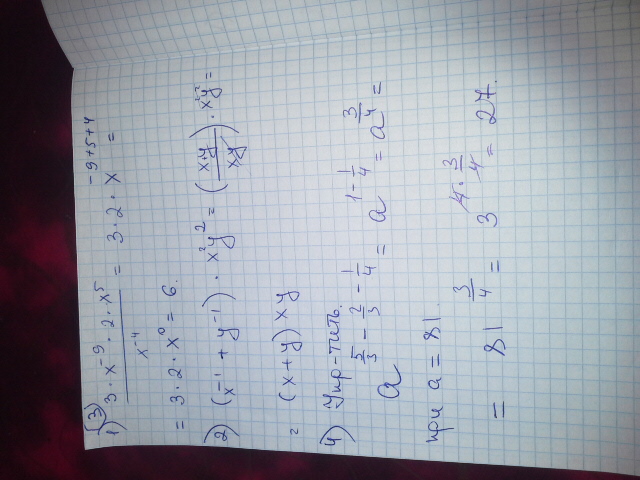 (3)
1) 3 · x⁻⁹ · 2 · x⁵ / x⁻⁴ = 3 · 2 · x^(-9+5+4) =
= 3 · 2 · x⁰ = 6.
2) (x⁻¹ + y⁻¹) · x²y² = (x+y / xy) · x²y² =
= (x + y) x y
4) Упр-тить.
a^(5/3 - 2/3 - 1/4) = a^(1 - 1/4) = a^(3/4) =
при a = 81.
= 81^(3/4) = 3^(4 · 3/4) = 27.